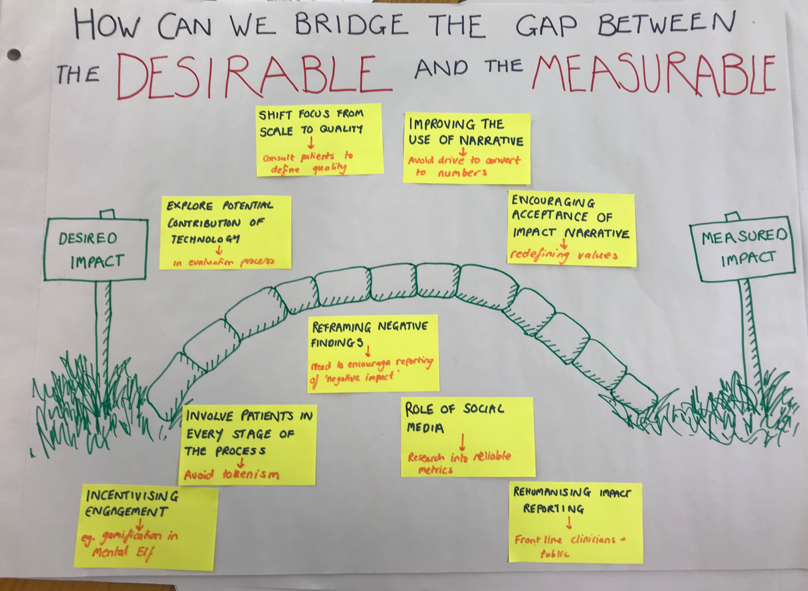 HOW CAN WE BRIDGE THE GAP BETWEEN
THE DESIRABLE AND THE MEASURABLE
SHIFT FOCUS FROM
SCALE TO QUALITY
Consult patients to
define quality
IMPROVING THE
USE OF NARRATIVE
Avoid drive to convert
to numbers
EXPLORE POTENTIAL
CONTRIBUTION OF
TECHNOLOGY
in evaluation process
ENCOURAGING
ACCEPTANCE OF
IMPACT NARRATIVE
redefining values
DESIRED
IMPACT
MEASURED
IMPACT
REFRAMING NEGATIVE
FINDINGS
Need to encourage reporting
of 'negative impact'
INVOLVE PATIENTS IN
EVERY STAGE OF
THE PROCESS
Avoid tokenism
ROLE OF SOCIAL
MEDIA
Research into reliable
metrics
INCENTIVISING
ENGAGEMENT
eg. gamification in
Mental Elf
REHUMANISING IMPACT
REPORTING
Front line clinicians +
Public